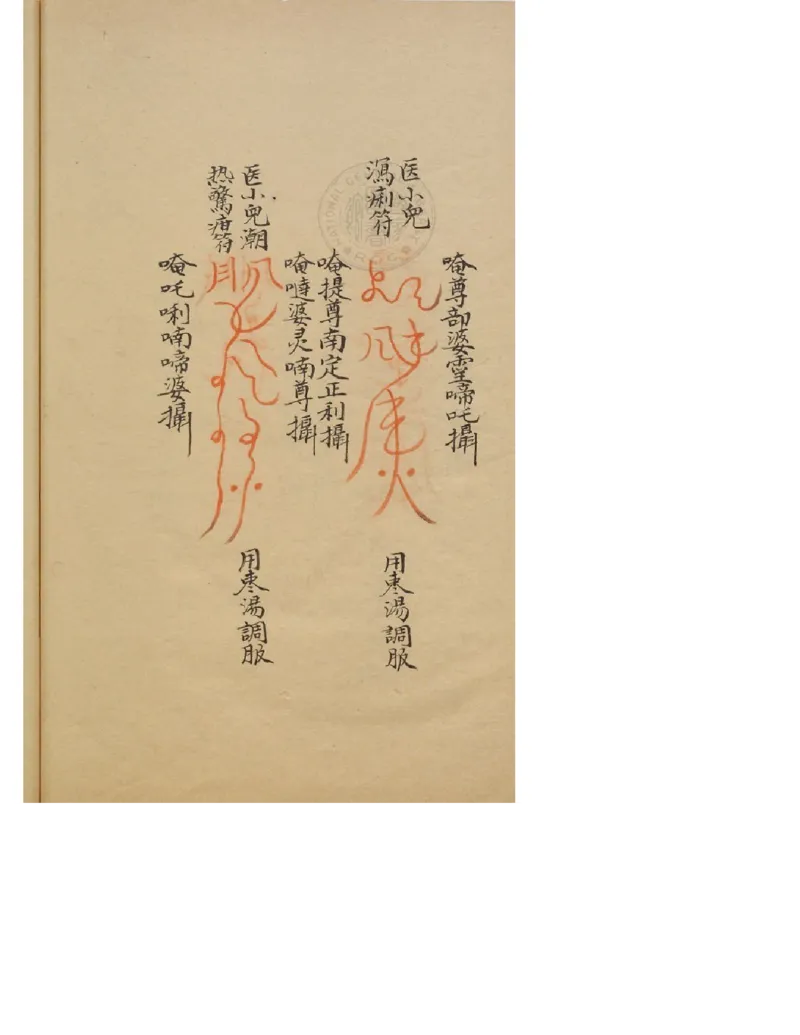 唵尊部婆霊啼吒攝
医小児
瀉痢符
用枣湯調服
唵提尊南定正利攝
唵噠婆灵喃尊攝
医小児潮
热驚疳符
用枣湯調服
唵吒唎喃啼婆攝